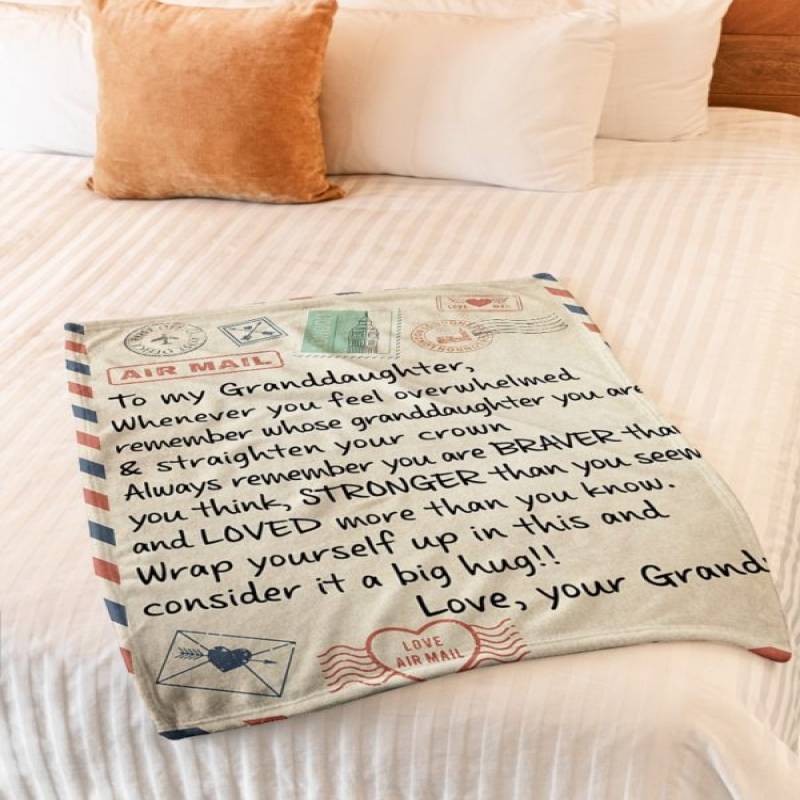 AIR MAIL
To my Granddaughter,
Whenever you feel overwhelmed
remember whose granddaughter you are
& straighten your crown
Always remember you are BRAVER than
you think, STRONGER than you seem
and LOVED more than you know.
Wrap yourself up in this and
consider it a big hug!!
Love, your Grand
LOVE
AIR MAIL